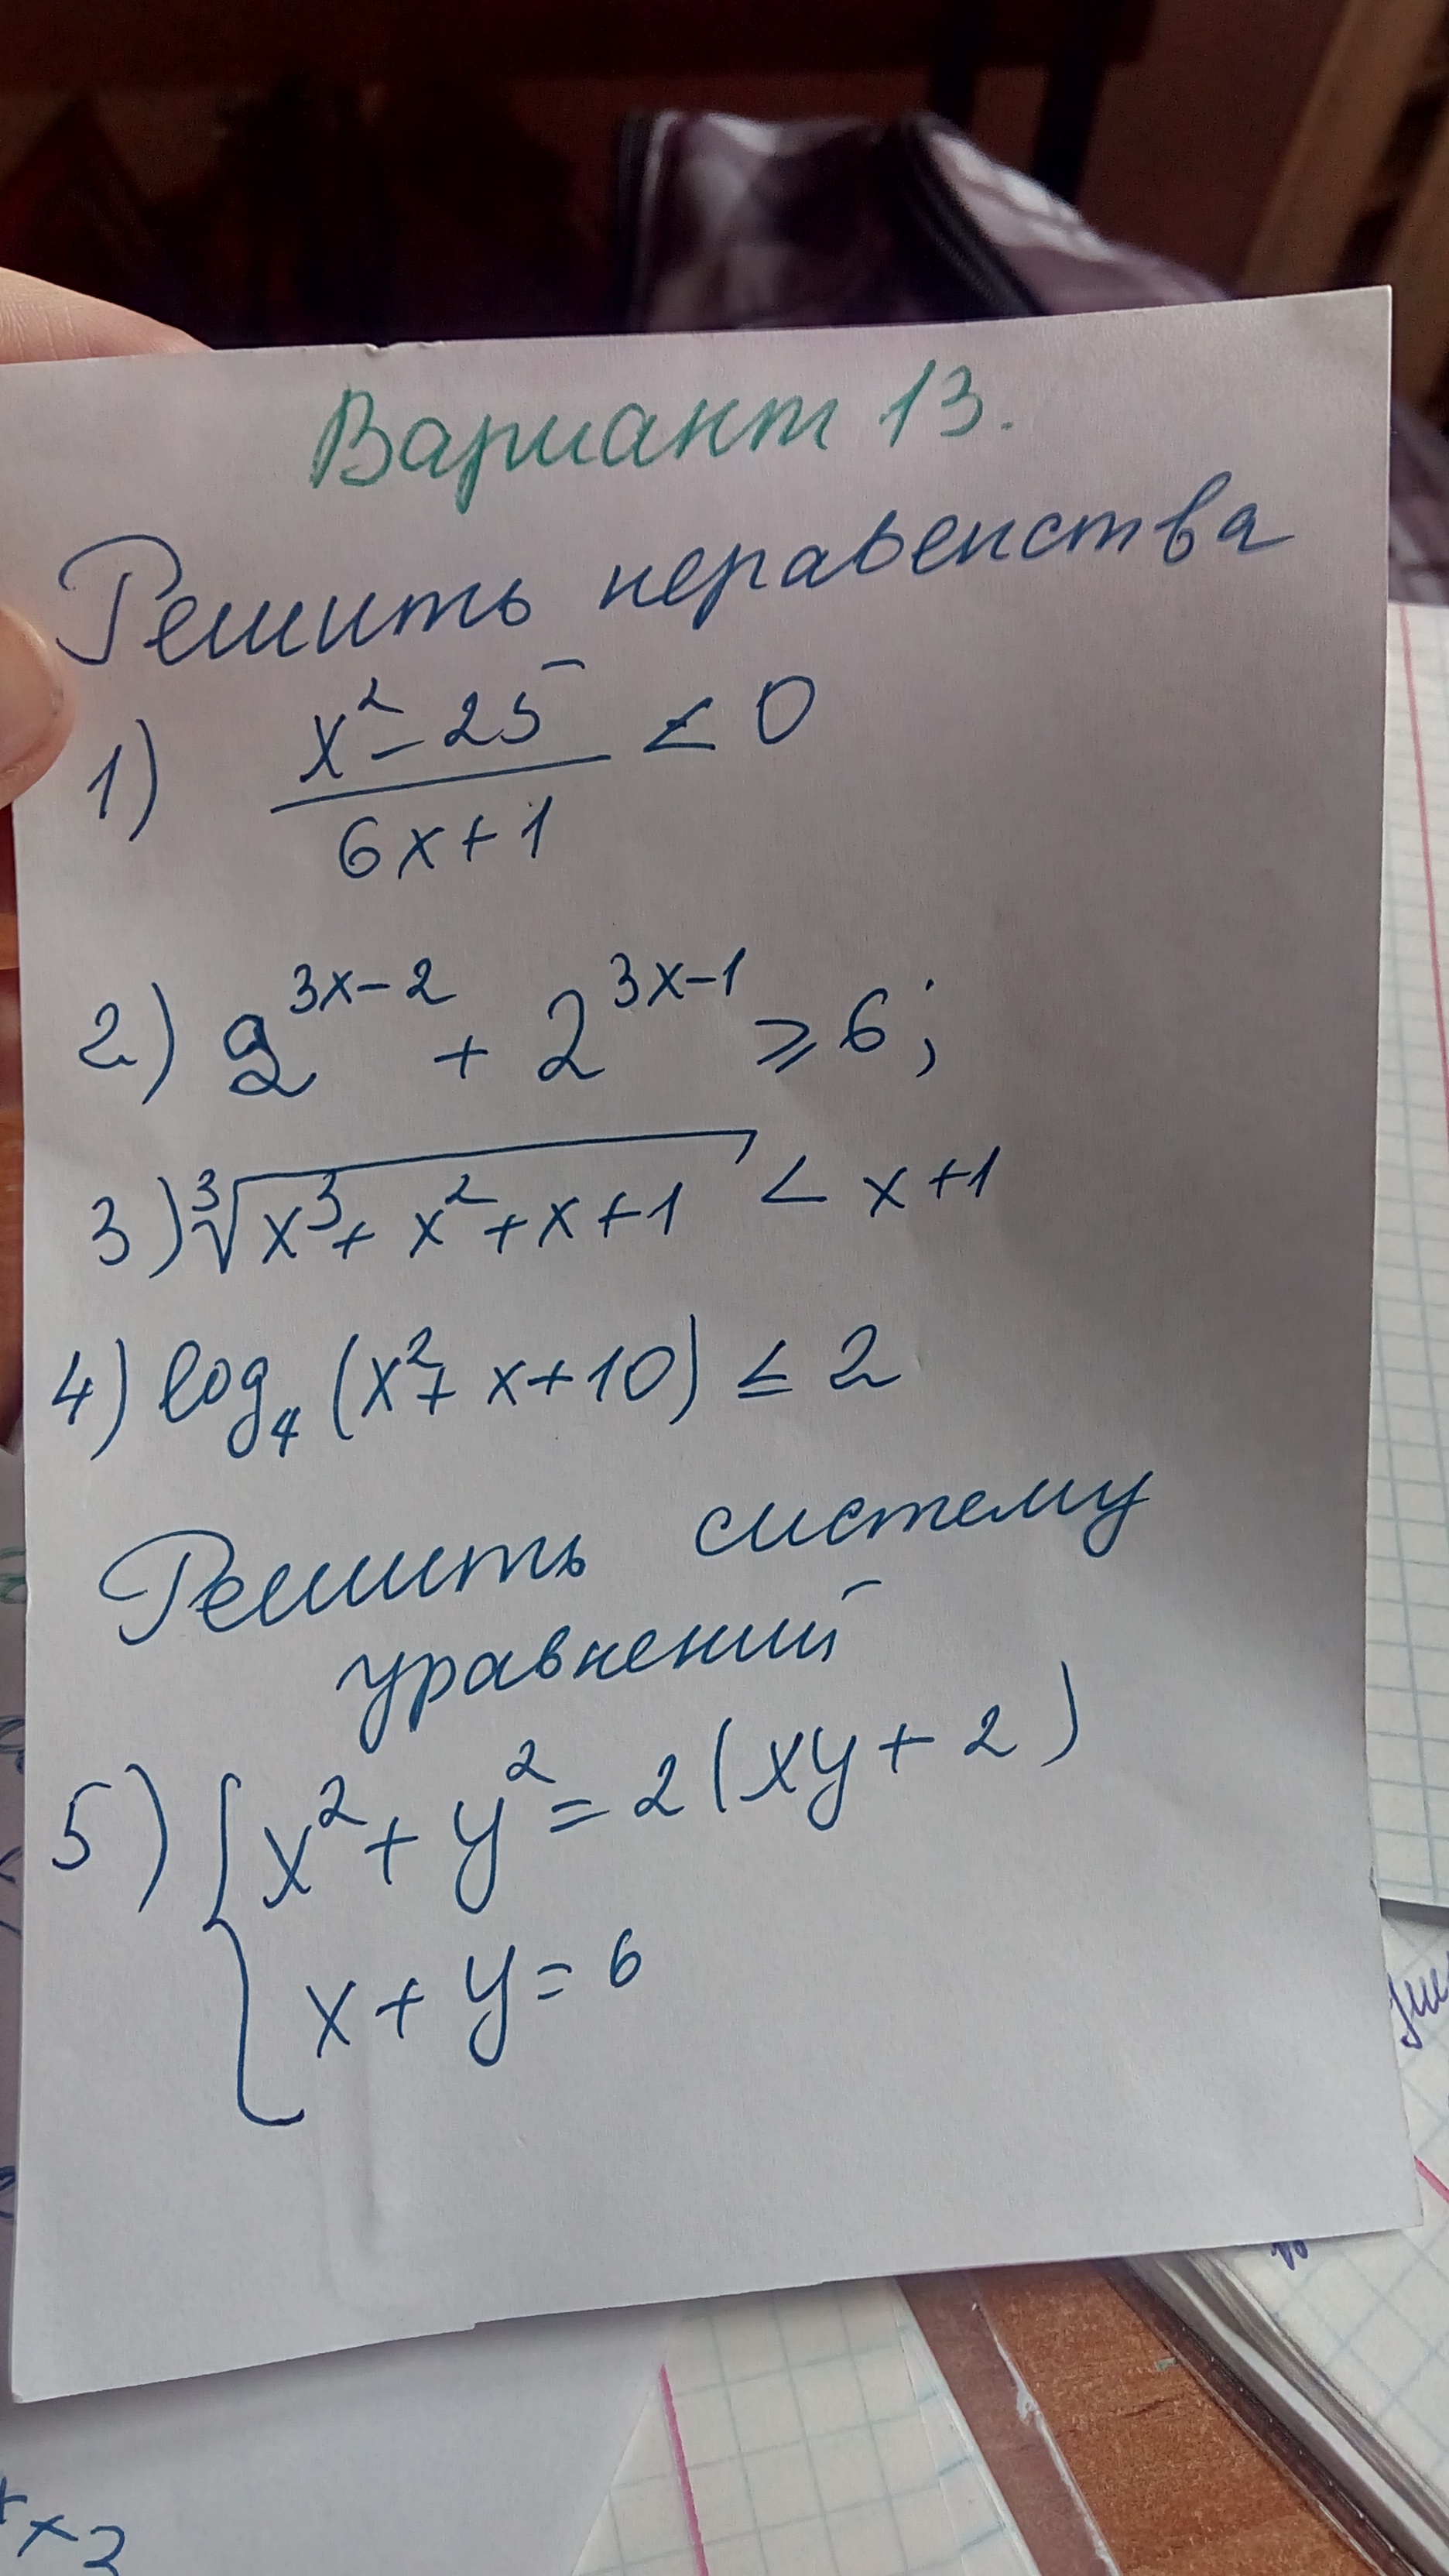 Вариант 13.
Решить неравенства
1) (x² - 25)/(6x + 1) < 0
2) 2^(3x-2) + 2^(3x-1) ⩾ 6;
3) ∛(x³ + x² + x + 1) < x + 1
4) log₄ (x² + x + 10) ≤ 2
Решить систему
уравнений
5) { x² + y² = 2(xy + 2)
x + y = 6